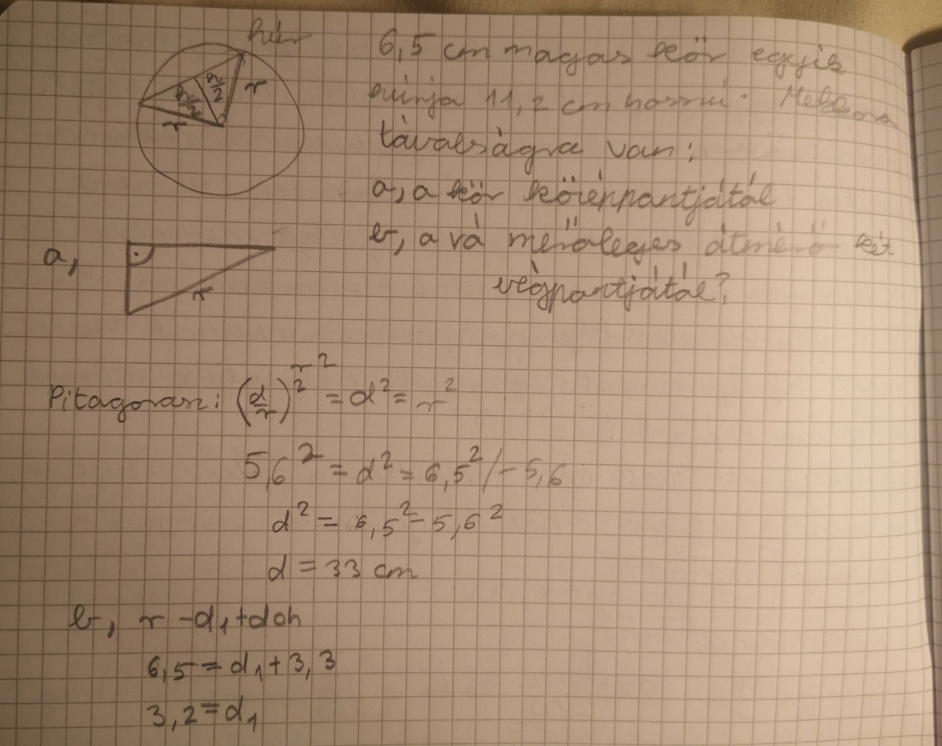 húr
6,5 cm magas kör egyik
r
a/2
a/2
húrja 11,2 cm hosszú. Mekkora
r
távolságra van:
a, a kör középpontjától
b, a rá merőleges átmérő két
a,
végpontjától?
r
Pitagorasz: (d/r)2 r2 = d2 = r2
5,6 2 = d2 = 6,5 2 /- 5,6
d2 = 6,5 2 - 5,6 2
d = 33 cm
b, r - d1 + doh
6,5 = d1 + 3,3
3,2 = d1